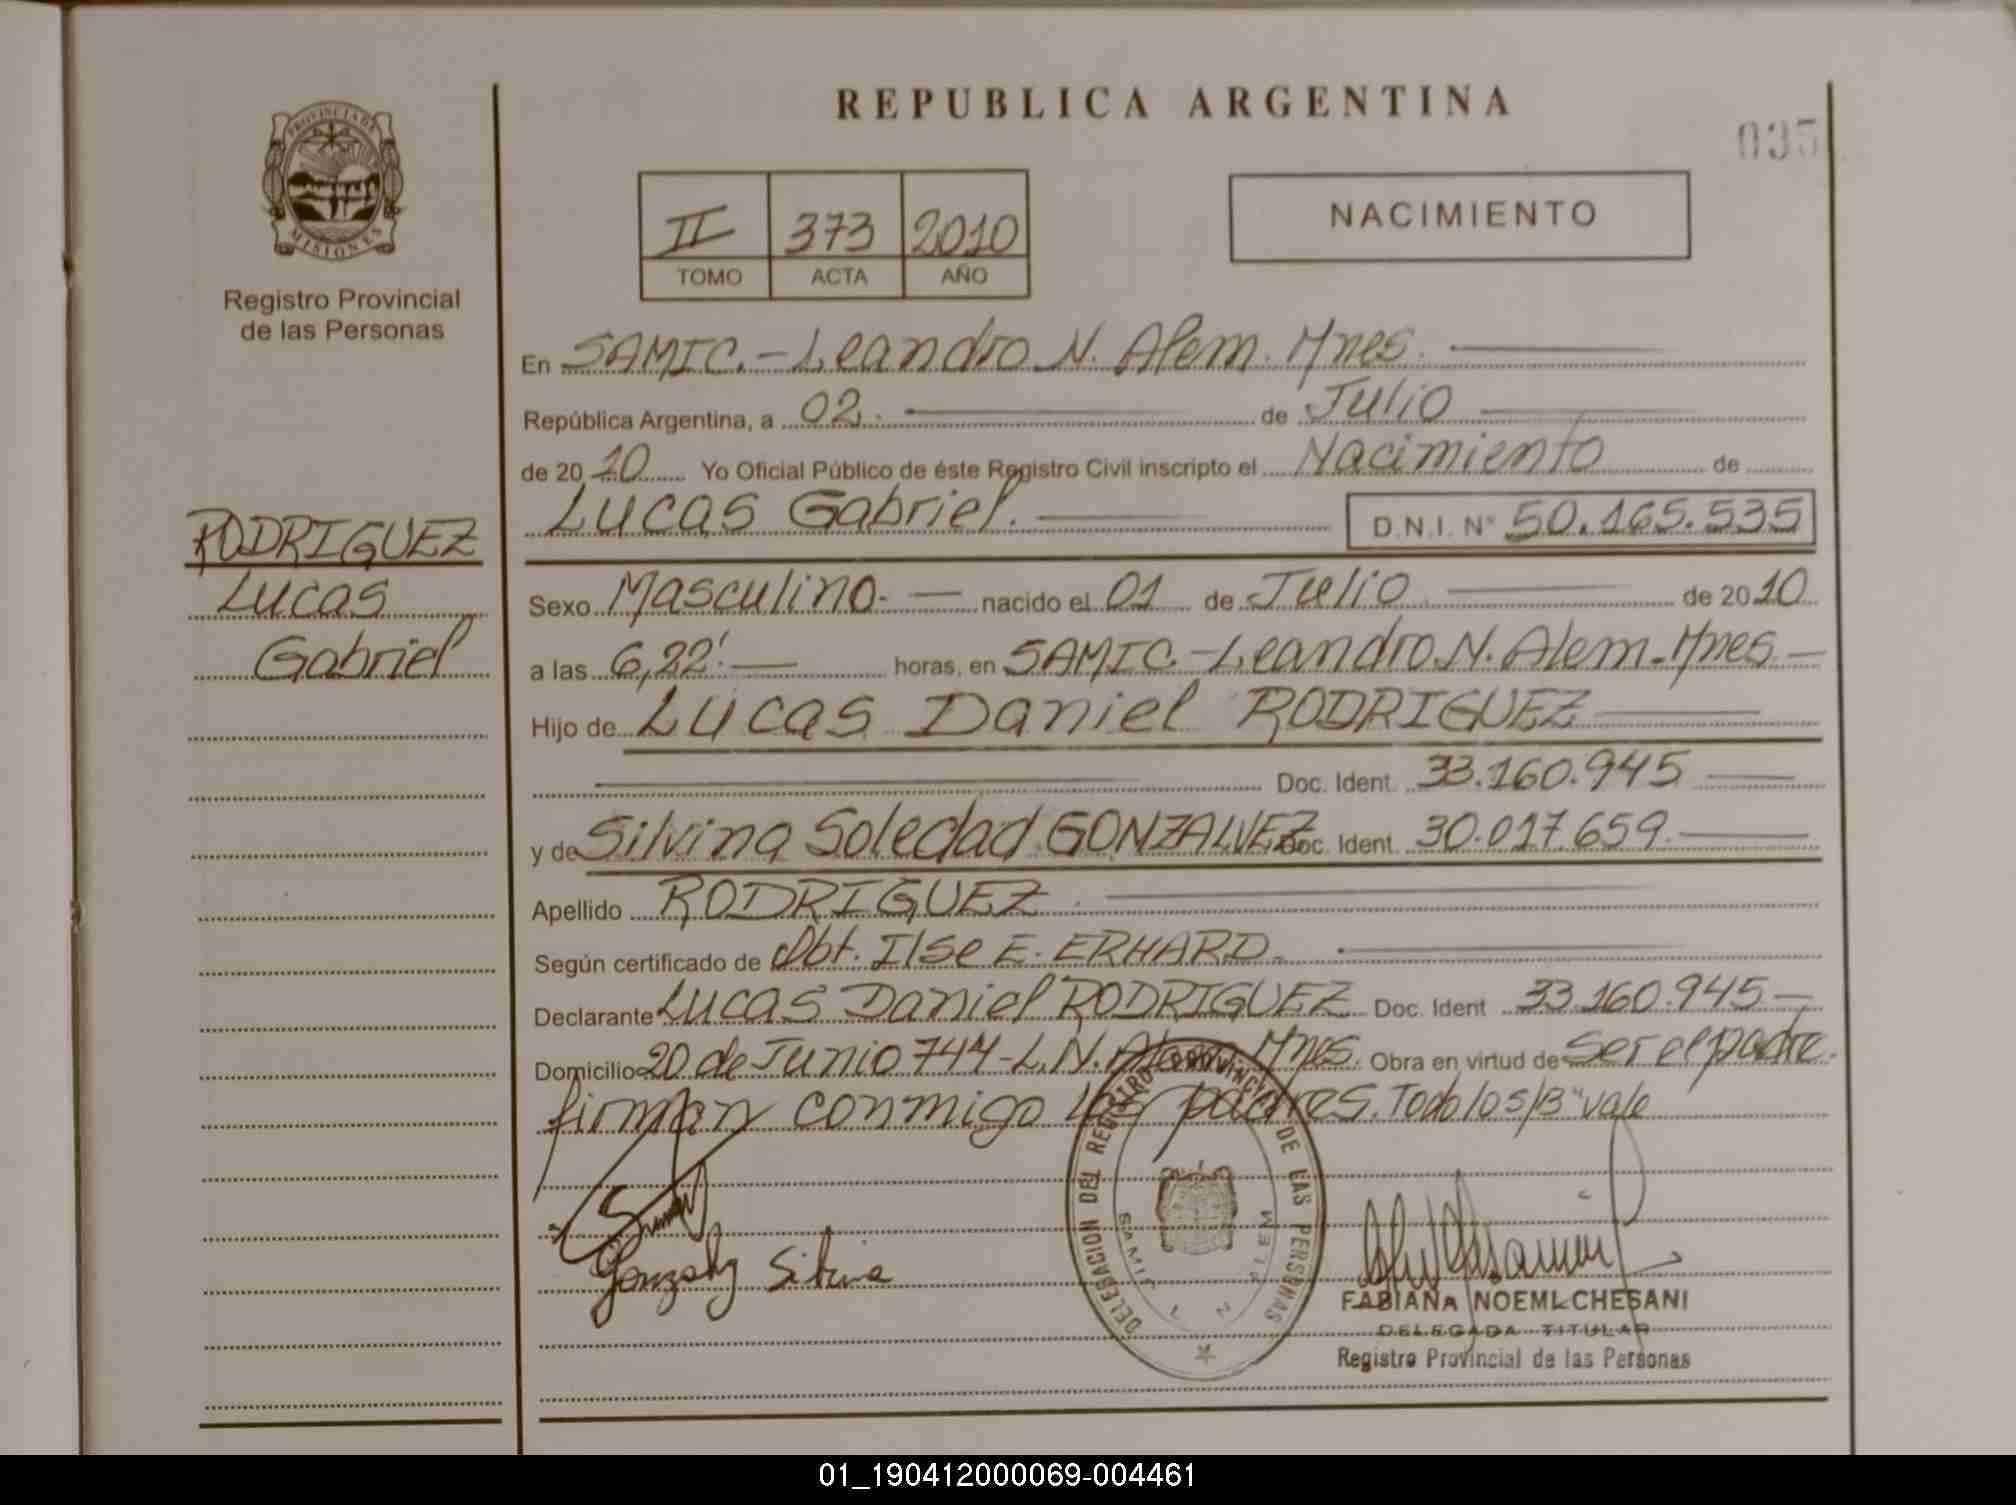 REPUBLICA ARGENTINA
035
PROVINCIA DE
MISIONES
Registro Provincial
de las Personas
II 373 2010
TOMO ACTA AÑO
NACIMIENTO
En SAMIC.-Leandro N. Alem. Mnes.
República Argentina, a 02. de Julio
de 20 10 Yo Oficial Público de éste Registro Civil inscripto el Nacimiento de
Lucas Gabriel. D.N.I. N° 50.165.535
RODRIGUEZ
Lucas
Gabriel
Sexo Masculino. nacido el 01 de Julio de 20 10
a las 6,22'. horas, en SAMIC.-Leandro N. Alem-Mnes
Hijo de Lucas Daniel RODRIGUEZ
Doc. Ident. 33.160.945
y de Silvina Soledad GONZALVEZ Doc. Ident. 30.017.659.
Apellido RODRIGUEZ.
Según certificado de Obt. Ilse E. ERHARD.
Declarante Lucas Daniel RODRIGUEZ Doc. Ident 33.160.945
Domicilio 20 de Junio 744-L.N. Alem Mnes. Obra en virtud de Ser el padre.
firman conmigo los padres. Todo los/B "vale
DELEGACION DEL REGISTRO PROVINCIAL DE LAS PERSONAS
SAMIC L N ALEM
Silvina
FABIANA NOEMI CHESANI
DELEGADA TITULAR
Registro Provincial de las Personas
01_190412000069-004461